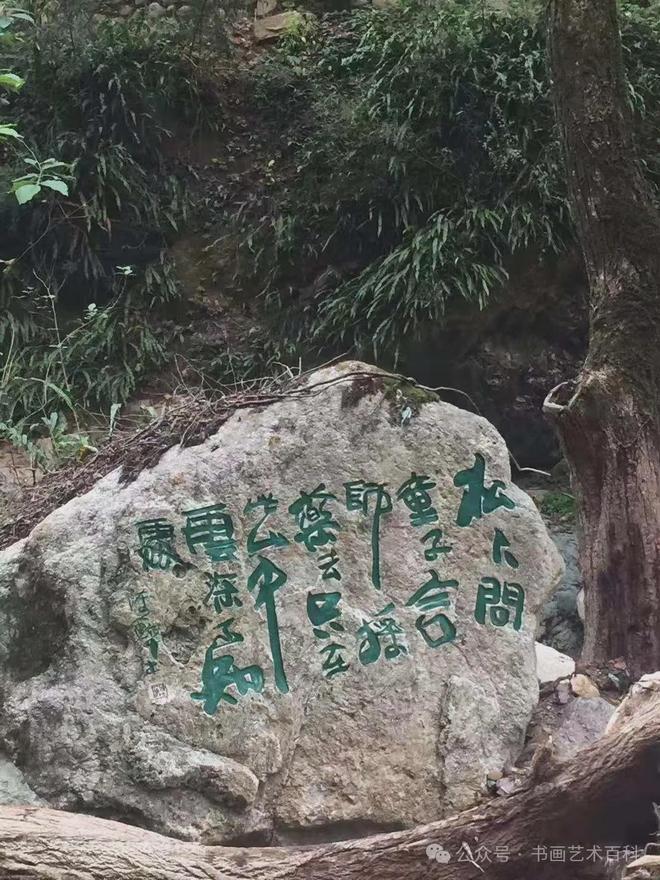 松下問
童子言
師採
藥去只在
此山中
雲深不知
處
公众号 · 书画艺术百科